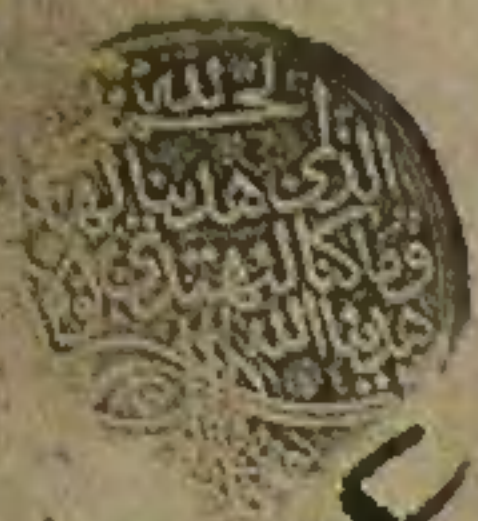 الحمد لله
الذى هدينا لهذا
وما كنا لنهتدى لولا
هدينا الله